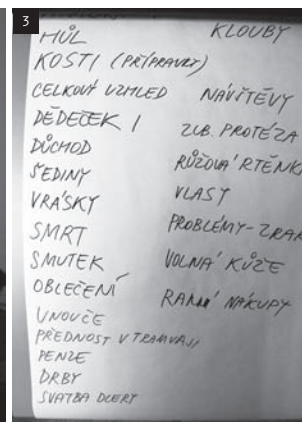 3
HŮL
KOSTI (PŘÍPRAVKY)
CELKOVÝ VZHLED
DĚDEČEK /
DŮCHOD
ŠEDINY
VRÁSKY
SMRT
SMUTEK
OBLEČENÍ
VNOUČE
PŘEDNOST V TRAMVAJI
PENZE
DRBY
SVATBA DCERY
KLOUBY
NÁVŠTĚVY
ZUB. PROTÉZA
RŮŽOVÁ RTĚNK
VLASY
PROBLÉMY-ZRAK
VOLNÁ KŮŽE
RANNÍ NÁKUPY